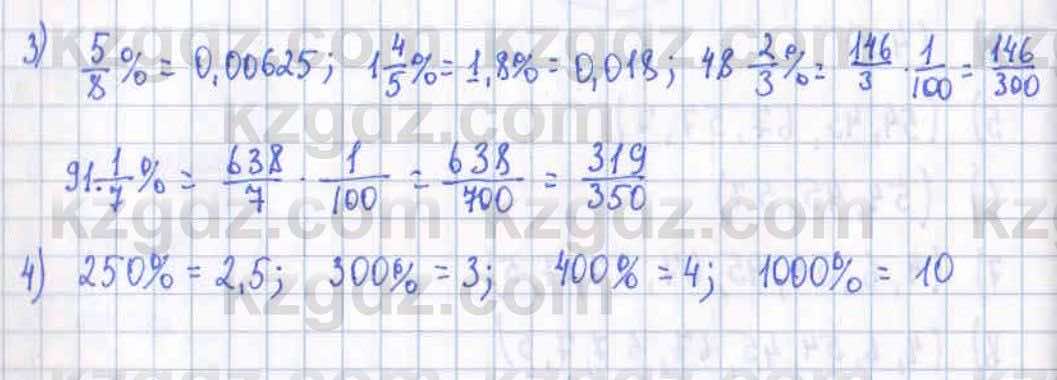 kzgdz.com kzgdz.com kz
3) 5/8 % = 0,00625; 1 4/5 % = 1,8% = 0,018; 48 2/3 % = 146/3 · 1/100 = 146/300
kzgdz.com
91 · 1/7 % = 638/7 · 1/100 = 638/700 = 319/350
kzgdz.com kzgdz.com kz
4) 250% = 2,5; 300% = 3; 400% = 4; 1000% = 10
kzgdz.com